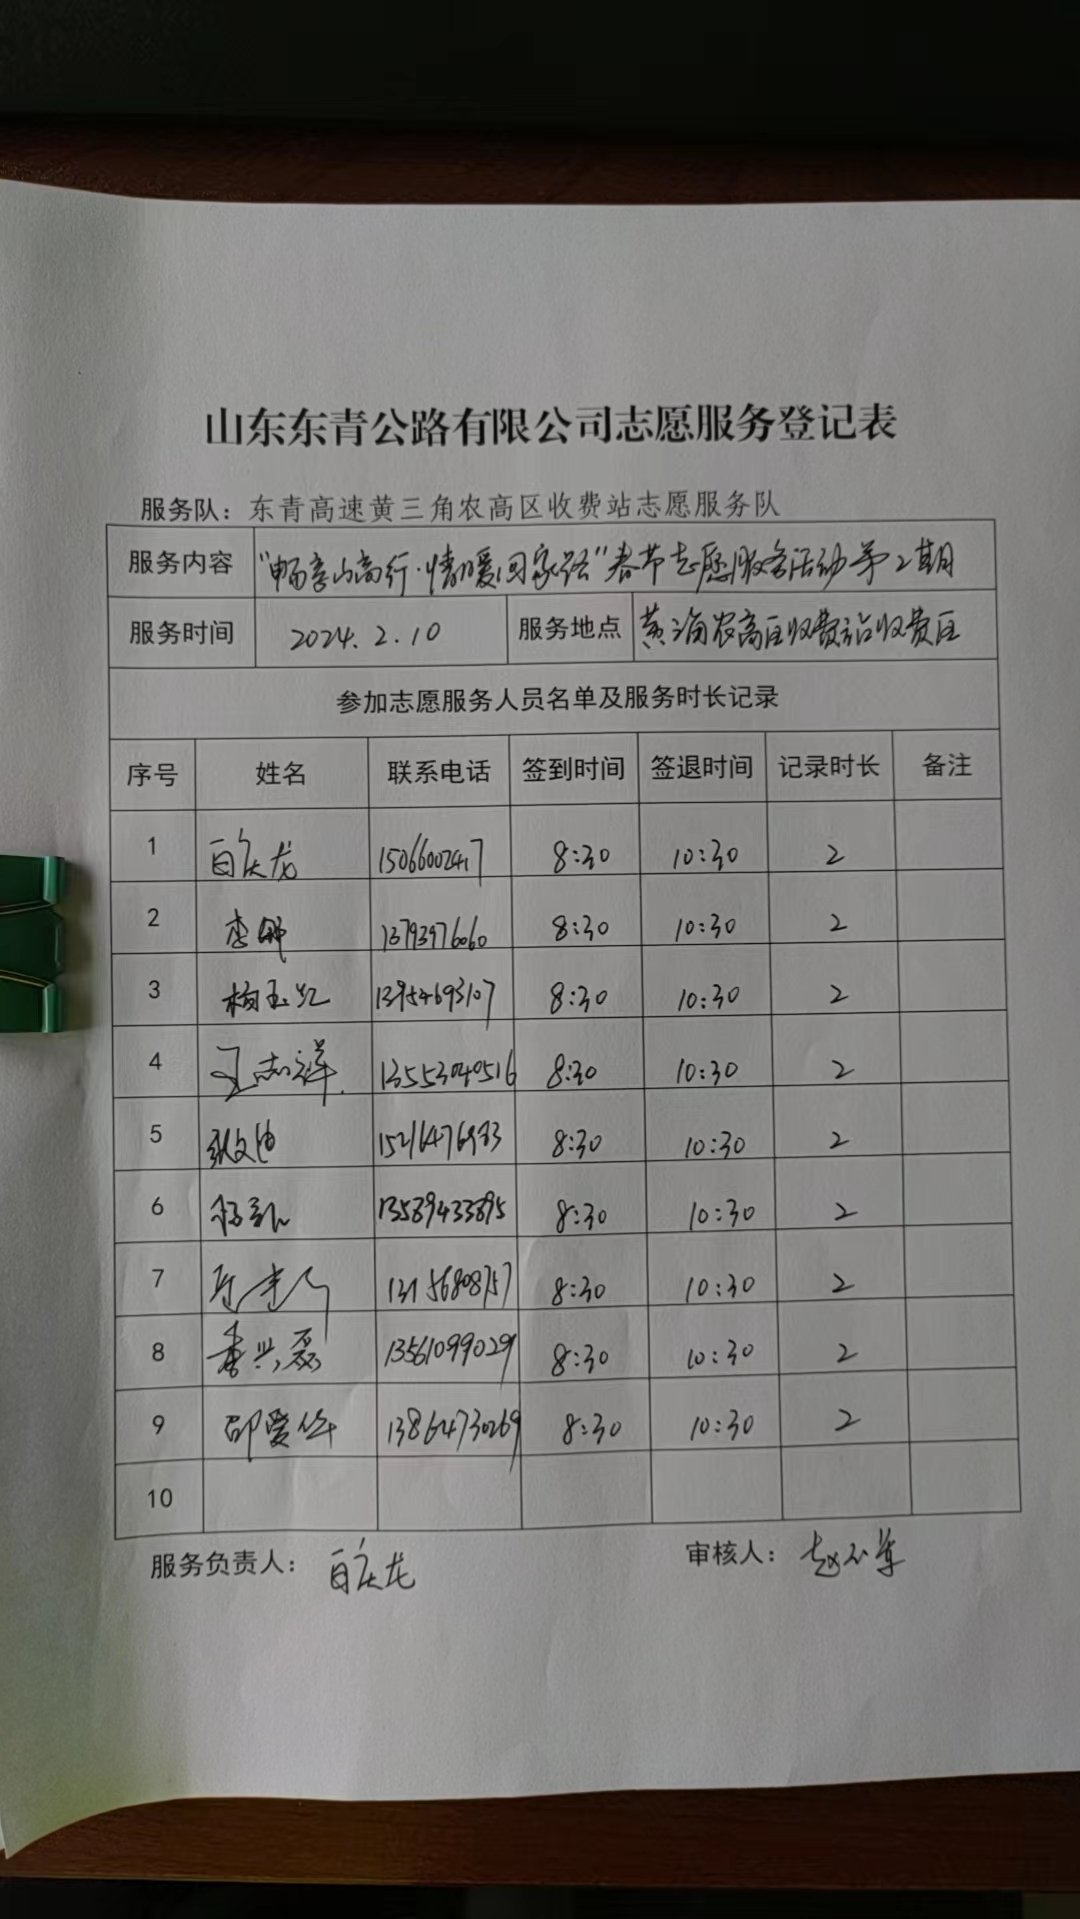 山东东青公路有限公司志愿服务登记表
服务队：东青高速黄三角农高区收费站志愿服务队
服务内容 "畅享山高行·情暖回家路"春节志愿服务活动第2期
服务时间 2024.2.10 服务地点 黄三角农高区收费站收费区
参加志愿服务人员名单及服务时长记录
序号 姓名 联系电话 签到时间 签退时间 记录时长 备注
1 百庆龙 15066002417 8:30 10:30 2
2 李娜 13793976060 8:30 10:30 2
3 杨玉红 13954693107 8:30 10:30 2
4 王志祥 13553040516 8:30 10:30 2
5 8:30 10:30 2
6 13589433895 8:30 10:30 2
7 8:30 10:30 2
8 李兴磊 13561099029 8:30 10:30 2
9 邵爱华 13864730269 8:30 10:30 2
10
服务负责人：百庆龙 审核人：赵小军